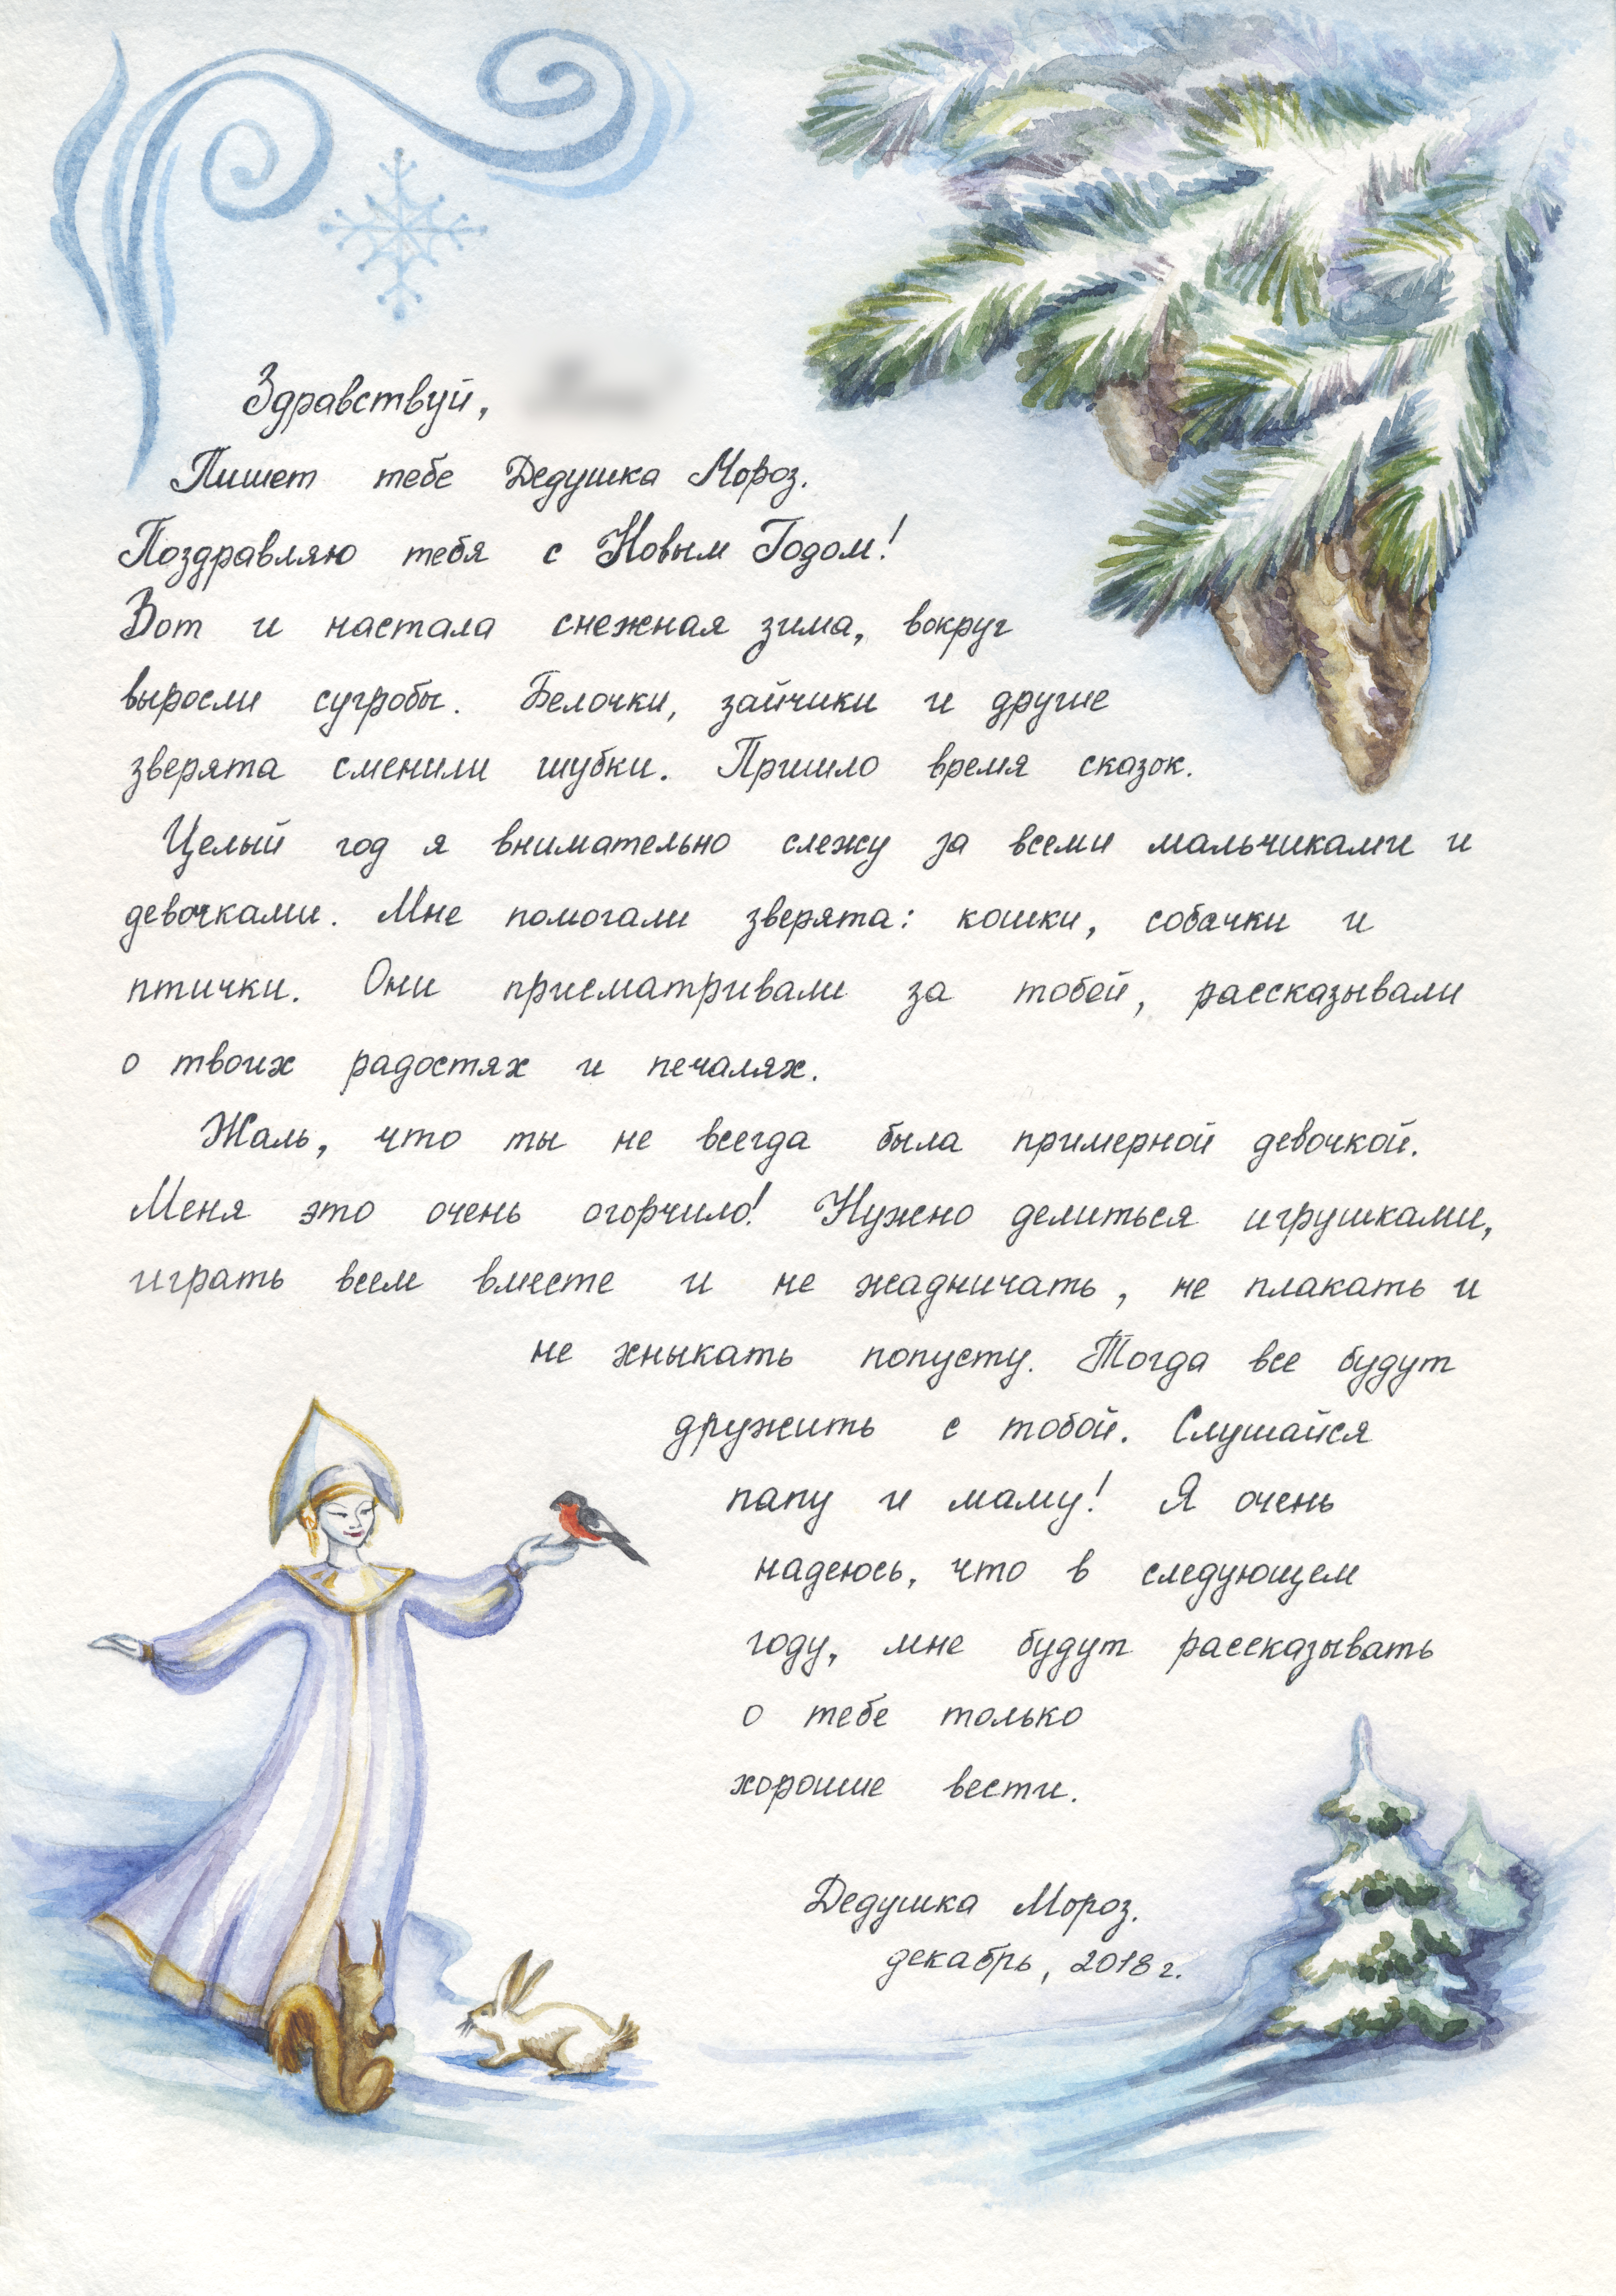 Здравствуй,
Пишет тебе Дедушка Мороз.
Поздравляю тебя с Новым Годом!
Вот и настала снежная зима, вокруг
выросли сугробы. Белочки, зайчики и другие
зверята сменили шубки. Пришло время сказок.
Целый год я внимательно слежу за всеми мальчиками и
девочками. Мне помогали зверята: кошки, собачки и
птички. Они присматривали за тобой, рассказывали
о твоих радостях и печалях.
Жаль, что ты не всегда была примерной девочкой.
Меня это очень огорчило! Нужно делиться игрушками,
играть всем вместе и не жадничать, не плакать и
не хныкать попусту. Тогда все будут
дружить с тобой. Слушайся
папу и маму! Я очень
надеюсь, что в следующем
году, мне будут рассказывать
о тебе только
хорошие вести.
Дедушка Мороз.
декабрь, 2018 г.